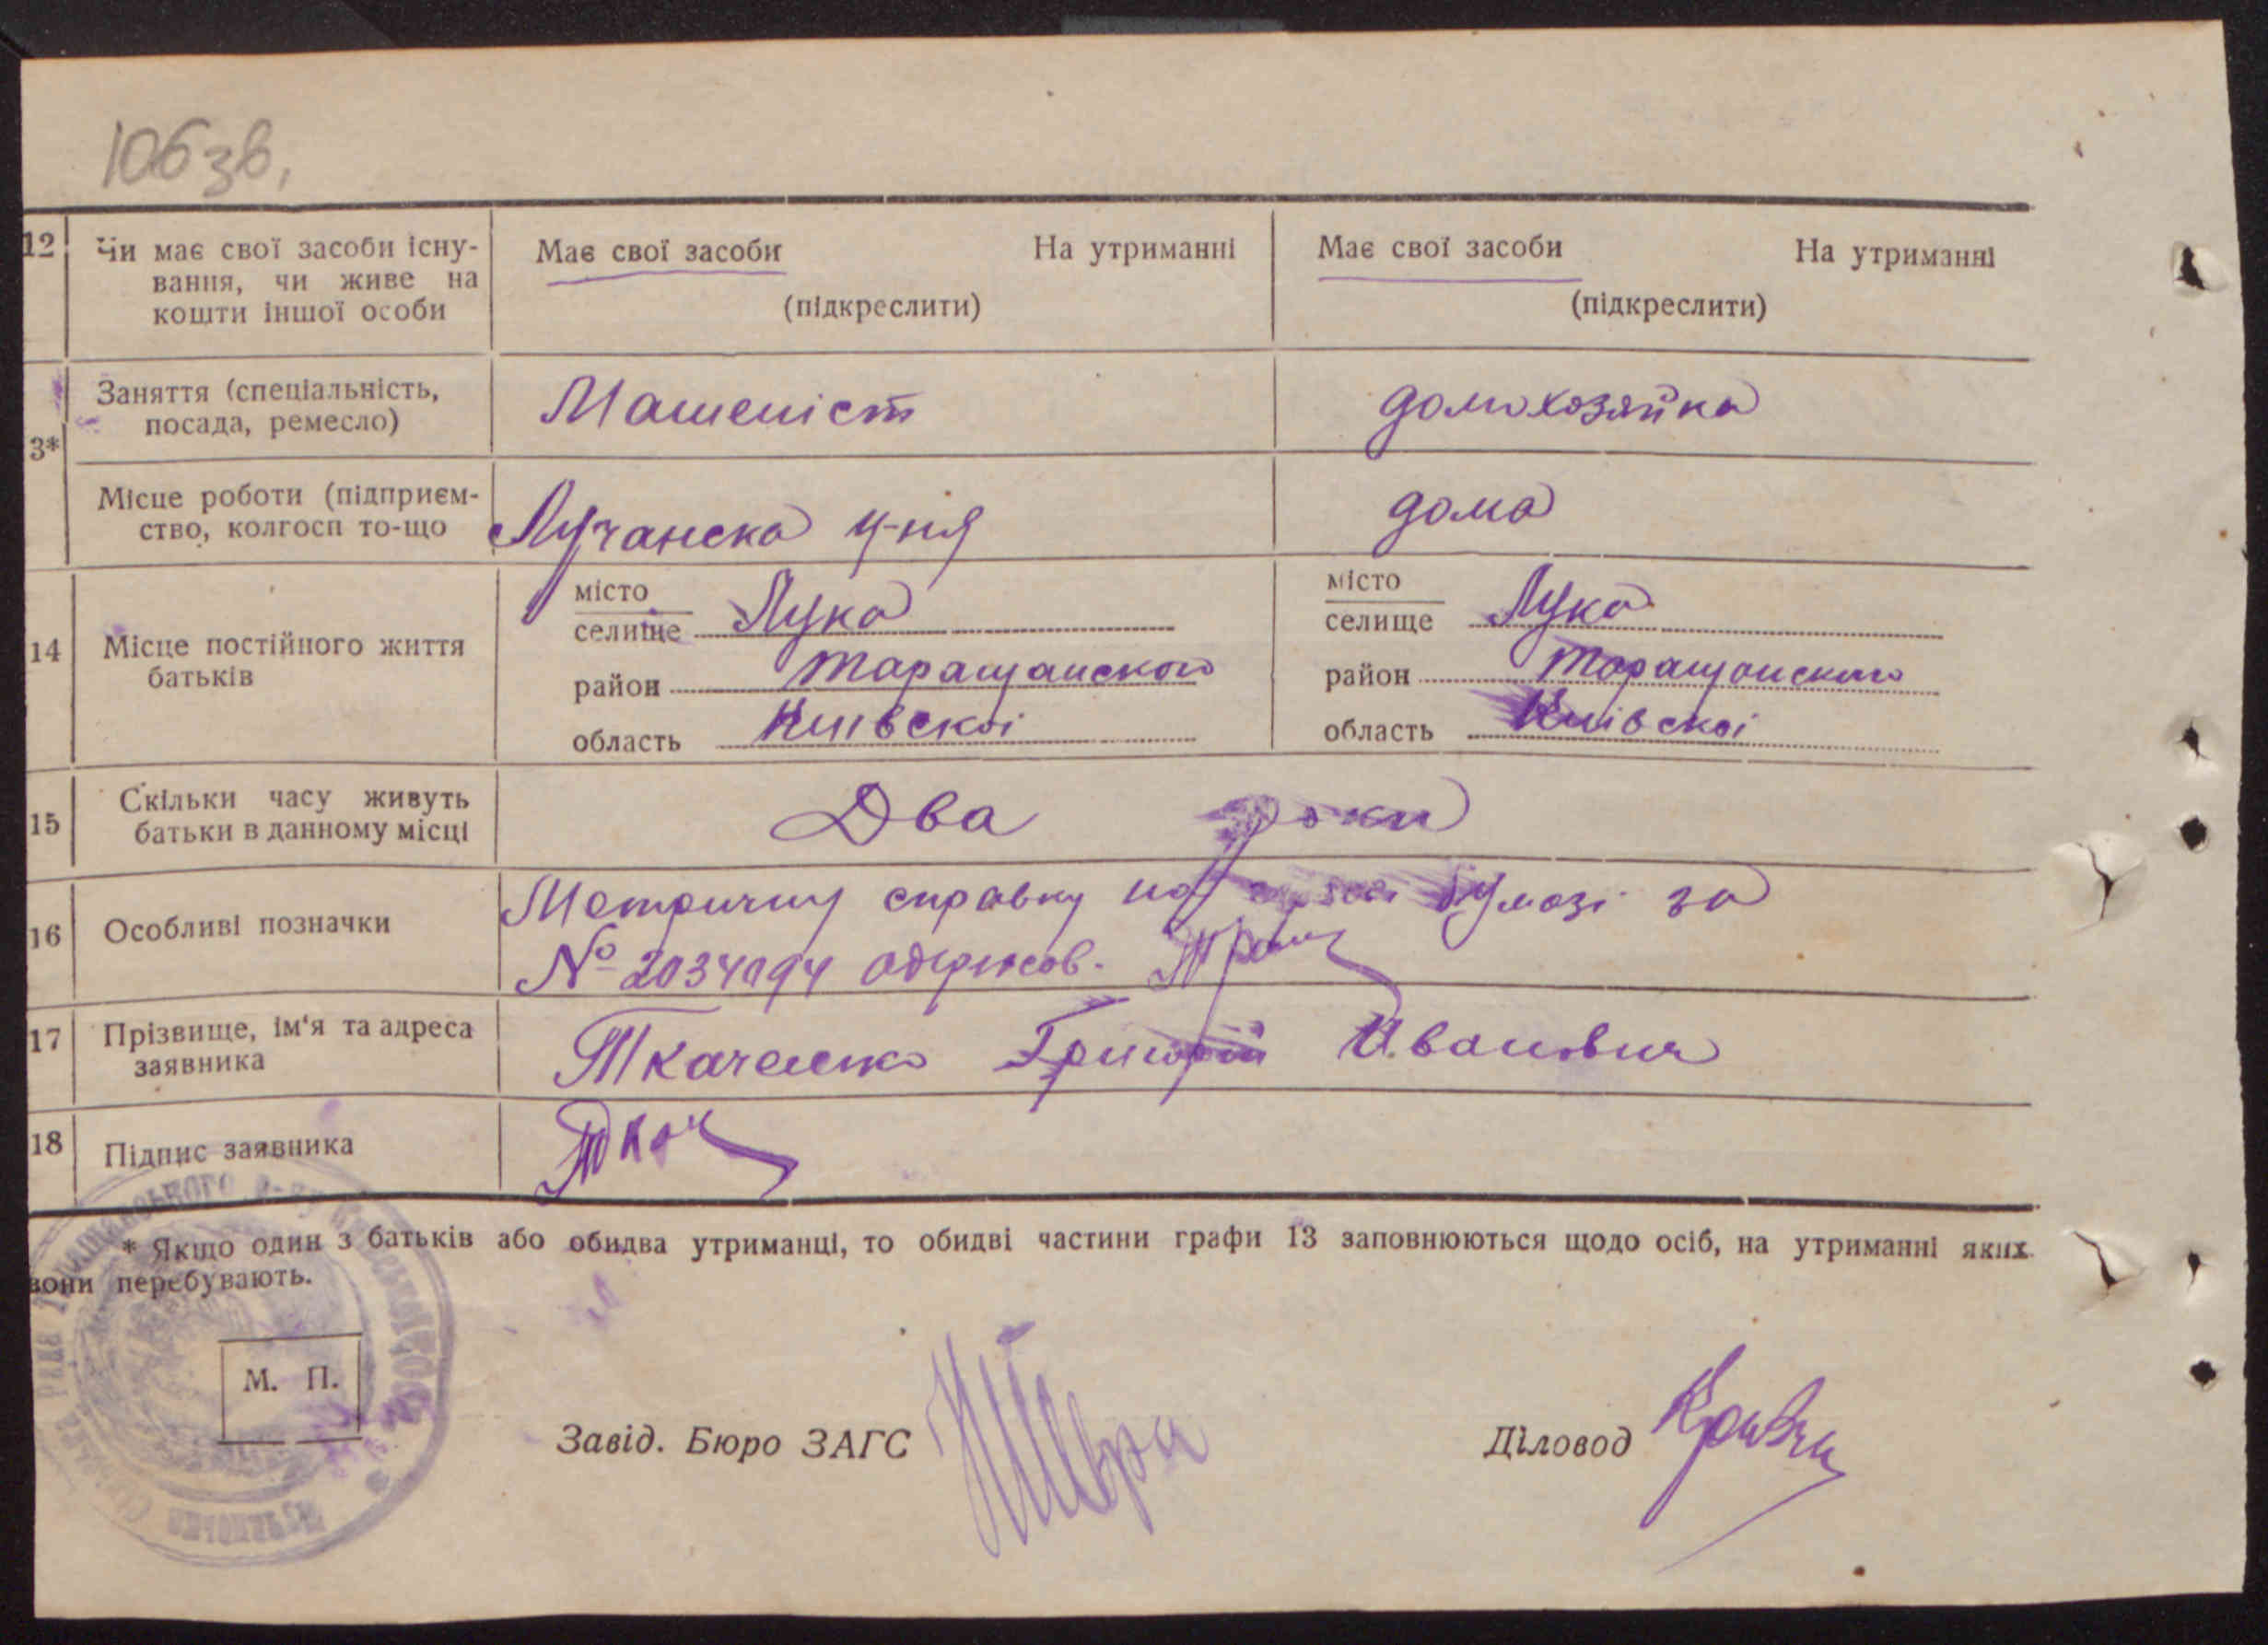 106 зв.
12 Чи має свої засоби існу- Має свої засоби На утриманні Має свої засоби На утриманні
вання, чи живе на
кошти іншої особи (підкреслити) (підкреслити)
Заняття (спеціальність, Машеніст домохозяйка
посада, ремесло)
3*
Місце роботи (підприєм- дома
ство, колгосп то-що Лучанска
місто місто
селище Лука селище Лука
14 Місце постійного життя район Таращанского район Таращанского
батьків
область Київскоі область Київскоі
15 Скільки часу живуть Два роки
батьки в данному місці
16 Особливі позначки Метричну справку на бумазі за
№ одержав.
17 Прізвище, ім'я та адреса Ткаченко Григорій Иванович
заявника
18 Підпис заявника Ткач
* Якщо один з батьків або обидва утриманці, то обидві частини графи 13 заповнюються щодо осіб, на утриманні яких
вони перебувають.
М. П.
Завід. Бюро ЗАГС
Діловод